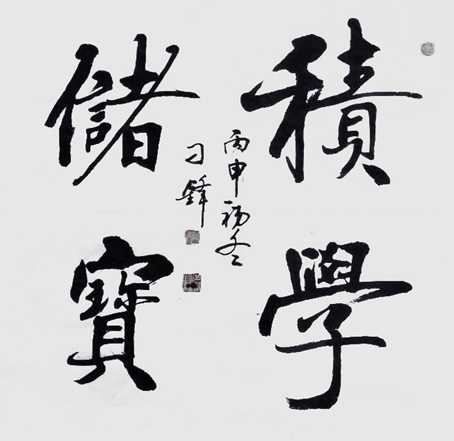 積學
儲寶
丙申初冬
刁鋒